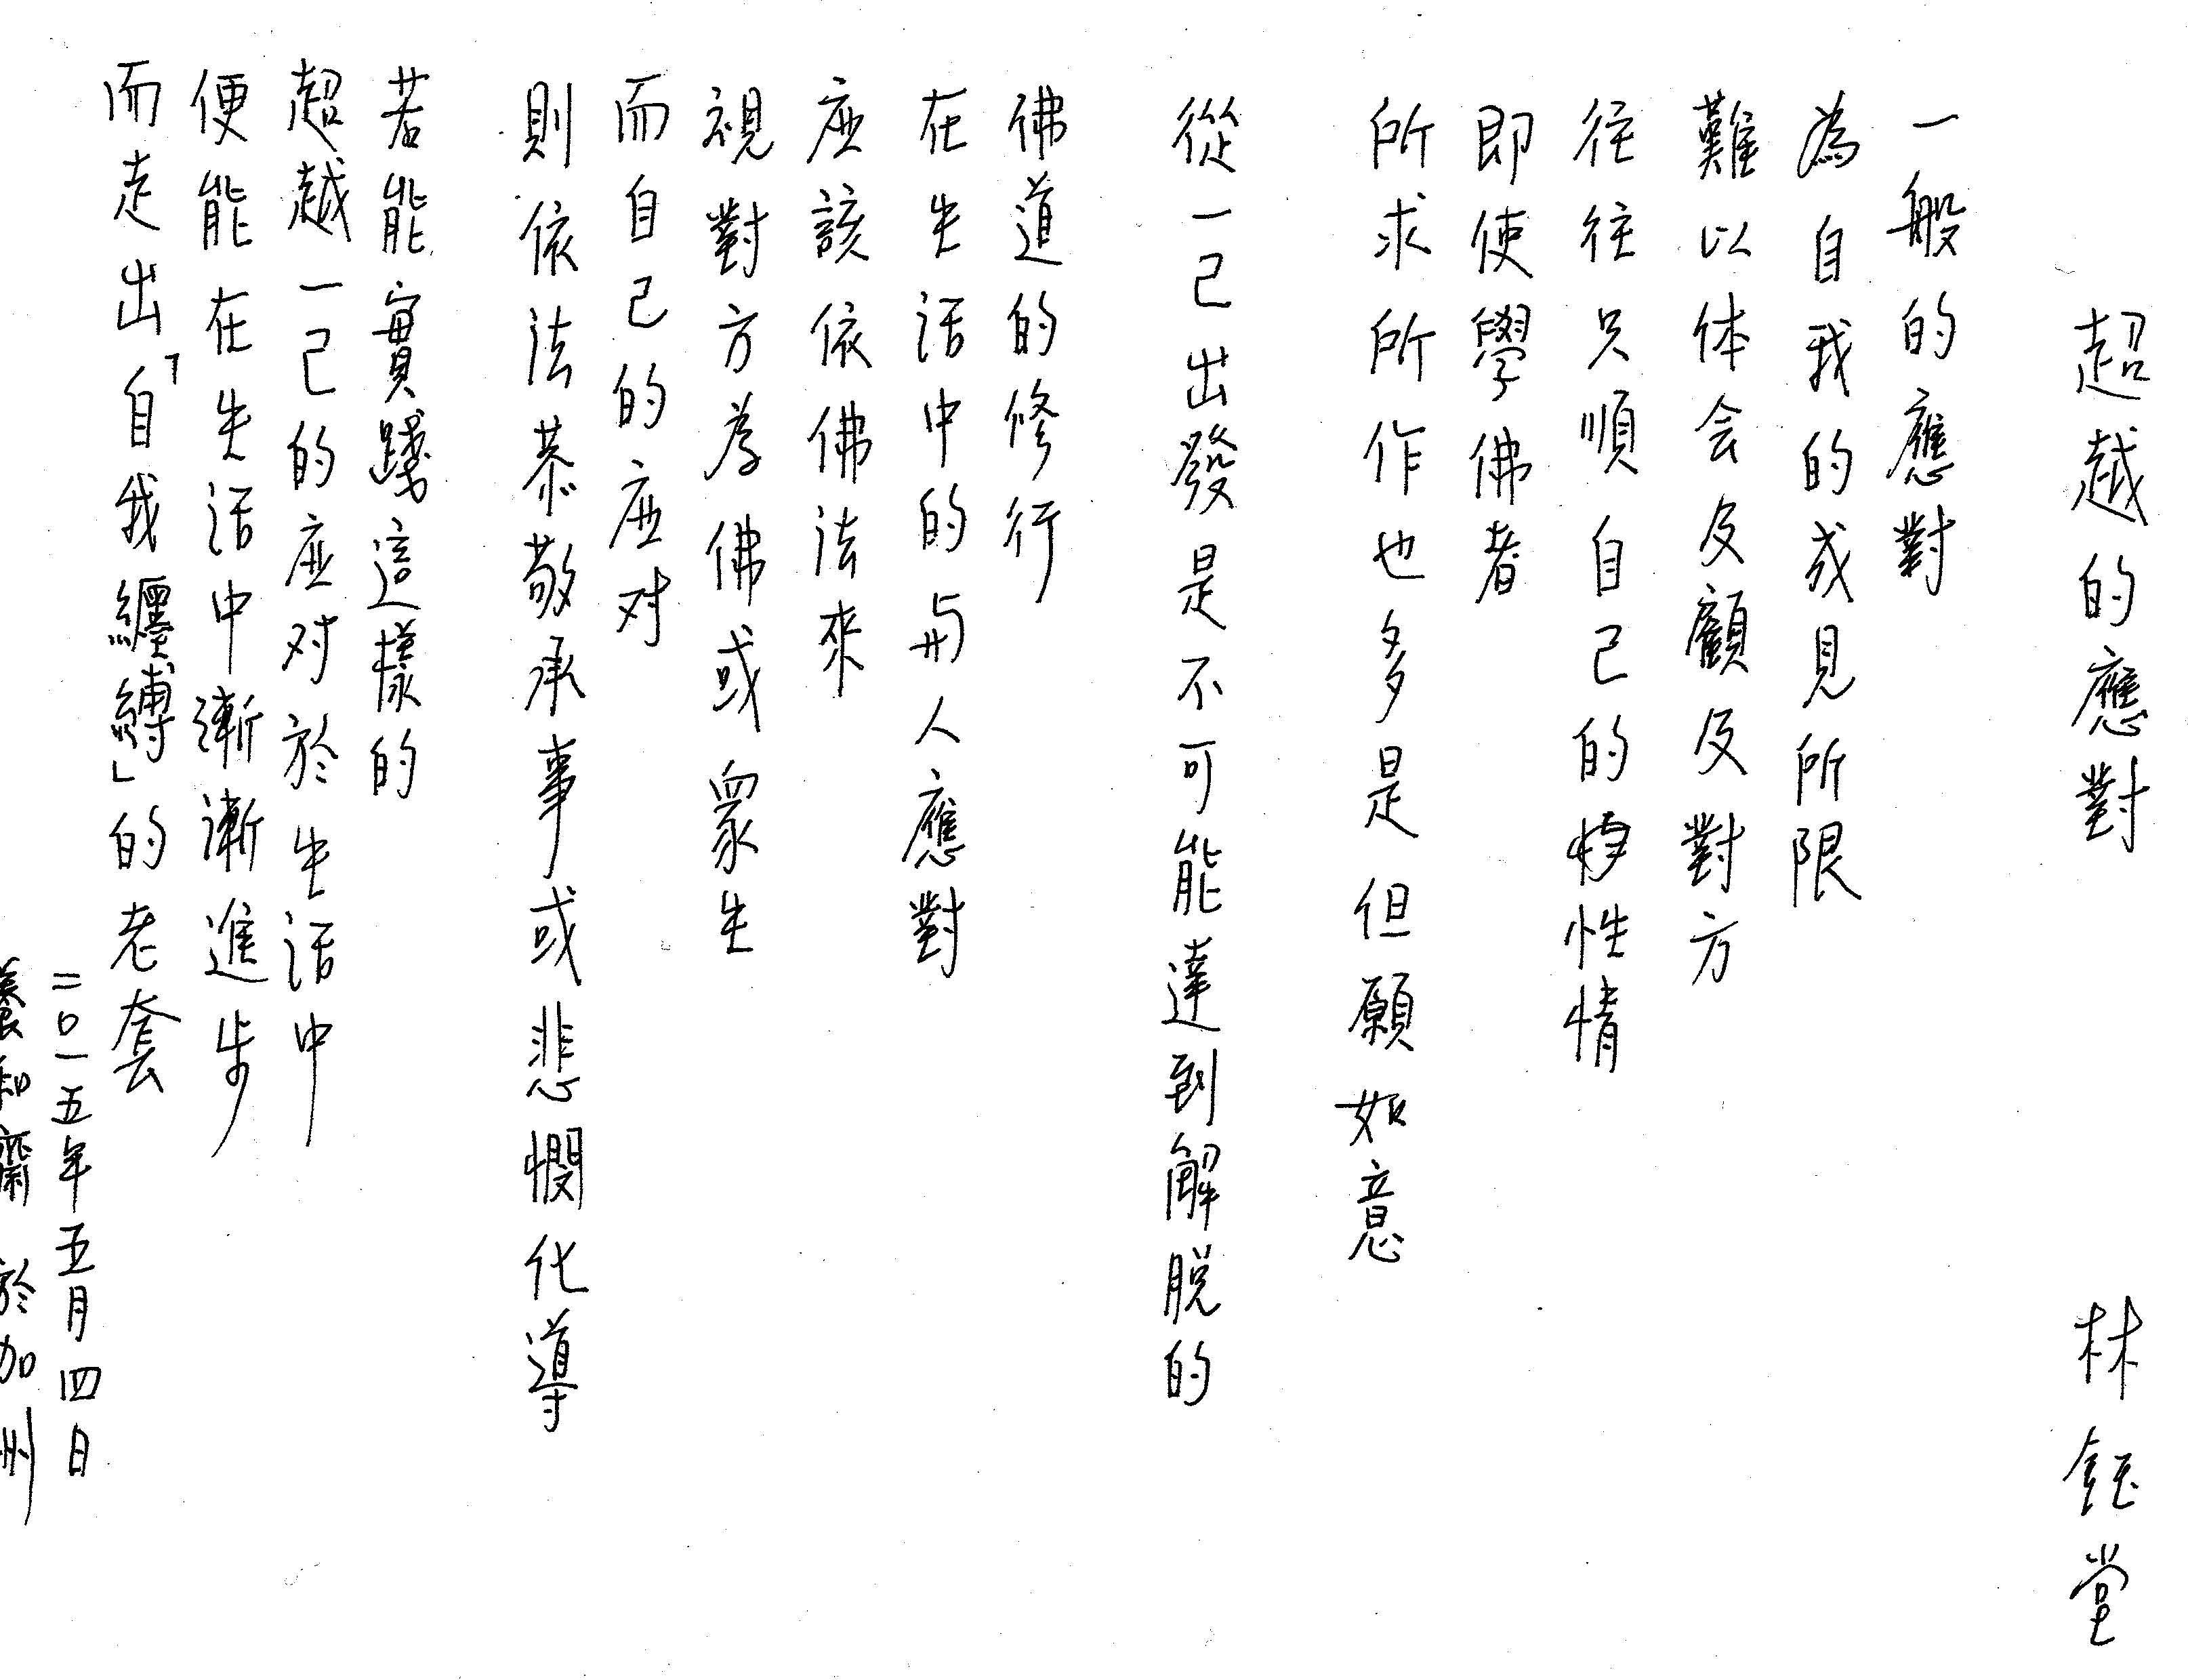 超越的應對 林鈺堂
一般的應對
為自我的成見所限
難以体会及顧及對方
往往只順自己的性情
即使學佛者
所求所作也多是但願如意
從一己出發是不可能達到解脫的
佛道的修行
在生活中的与人應對
应該依佛法來
視對方為佛或眾生
而自己的应对
則依法恭敬承事或悲憫化導
若能實踐這樣的
超越一己的应对於生活中
便能在生活中漸漸進步
而走出「自我纏縛」的老套
二〇一五年五月四日
養和齋 於加州